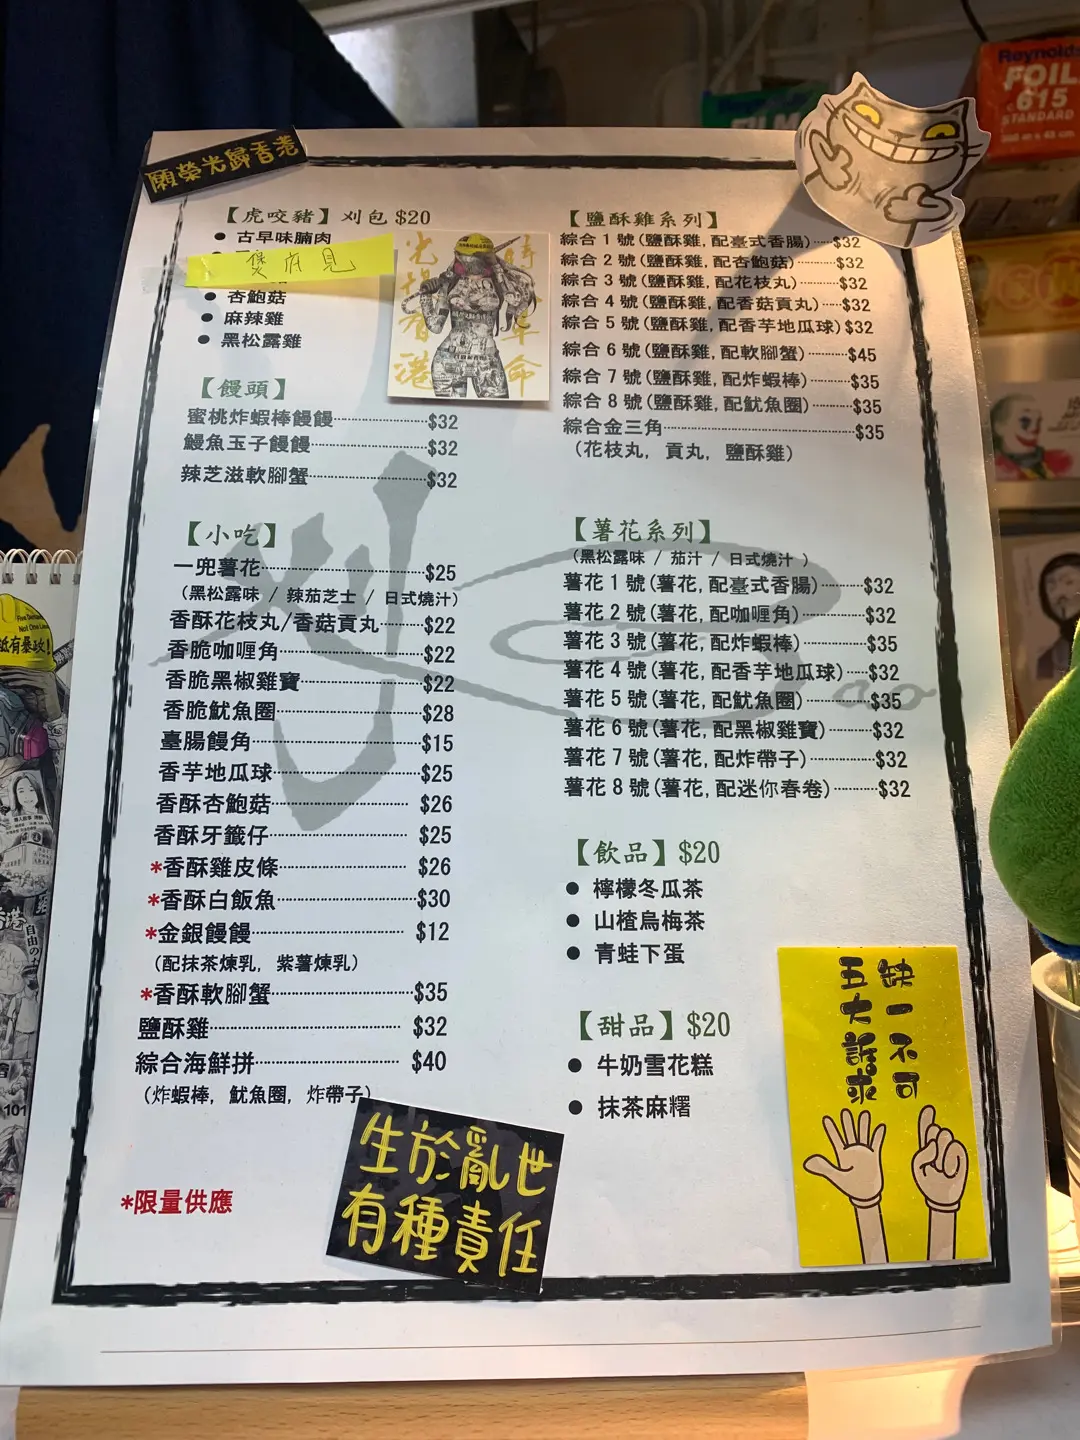 願榮光歸香港
【虎咬豬】刈包 $20
● 古早味腩肉
煲底見
● 杏鮑菇
● 麻辣雞
● 黑松露雞
光復香港
時代革命
【饅頭】
蜜桃炸蝦棒饅饅 $32
鰻魚玉子饅饅 $32
辣芝滋軟腳蟹 $32
【小吃】
一兜薯花 $25
(黑松露味 / 辣茄芝士 / 日式燒汁)
香酥花枝丸/香菇貢丸 $22
香脆咖喱角 $22
香脆黑椒雞寶 $22
香脆魷魚圈 $28
臺腸饅角 $15
香芋地瓜球 $25
香酥杏鮑菇 $26
香酥牙籤仔 $25
*香酥雞皮條 $26
*香酥白飯魚 $30
*金銀饅饅 $12
(配抹茶煉乳, 紫薯煉乳)
*香酥軟腳蟹 $35
鹽酥雞 $32
綜合海鮮拼 $40
(炸蝦棒, 魷魚圈, 炸帶子)
*限量供應
【鹽酥雞系列】
綜合 1 號(鹽酥雞,配臺式香腸) $32
綜合 2 號(鹽酥雞,配杏鮑菇) $32
綜合 3 號(鹽酥雞,配花枝丸) $32
綜合 4 號(鹽酥雞,配香菇貢丸) $32
綜合 5 號(鹽酥雞,配香芋地瓜球) $32
綜合 6 號(鹽酥雞,配軟腳蟹) $45
綜合 7 號(鹽酥雞,配炸蝦棒) $35
綜合 8 號(鹽酥雞,配魷魚圈) $35
綜合金三角 $35
(花枝丸, 貢丸, 鹽酥雞)
【薯花系列】
(黑松露味 / 茄汁 / 日式燒汁 )
薯花 1 號(薯花,配臺式香腸) $32
薯花 2 號(薯花,配咖喱角) $32
薯花 3 號(薯花,配炸蝦棒) $35
薯花 4 號(薯花,配香芋地瓜球) $32
薯花 5 號(薯花,配魷魚圈) $35
薯花 6 號(薯花,配黑椒雞寶) $32
薯花 7 號(薯花,配炸帶子) $32
薯花 8 號(薯花,配迷你春卷) $32
【飲品】$20
● 檸檬冬瓜茶
● 山楂烏梅茶
● 青蛙下蛋
【甜品】$20
● 牛奶雪花糕
● 抹茶麻糬
五大訴求
缺一不可
生於亂世
有種責任
Reynolds
FOIL
615
STANDARD
FILM
自由の
101